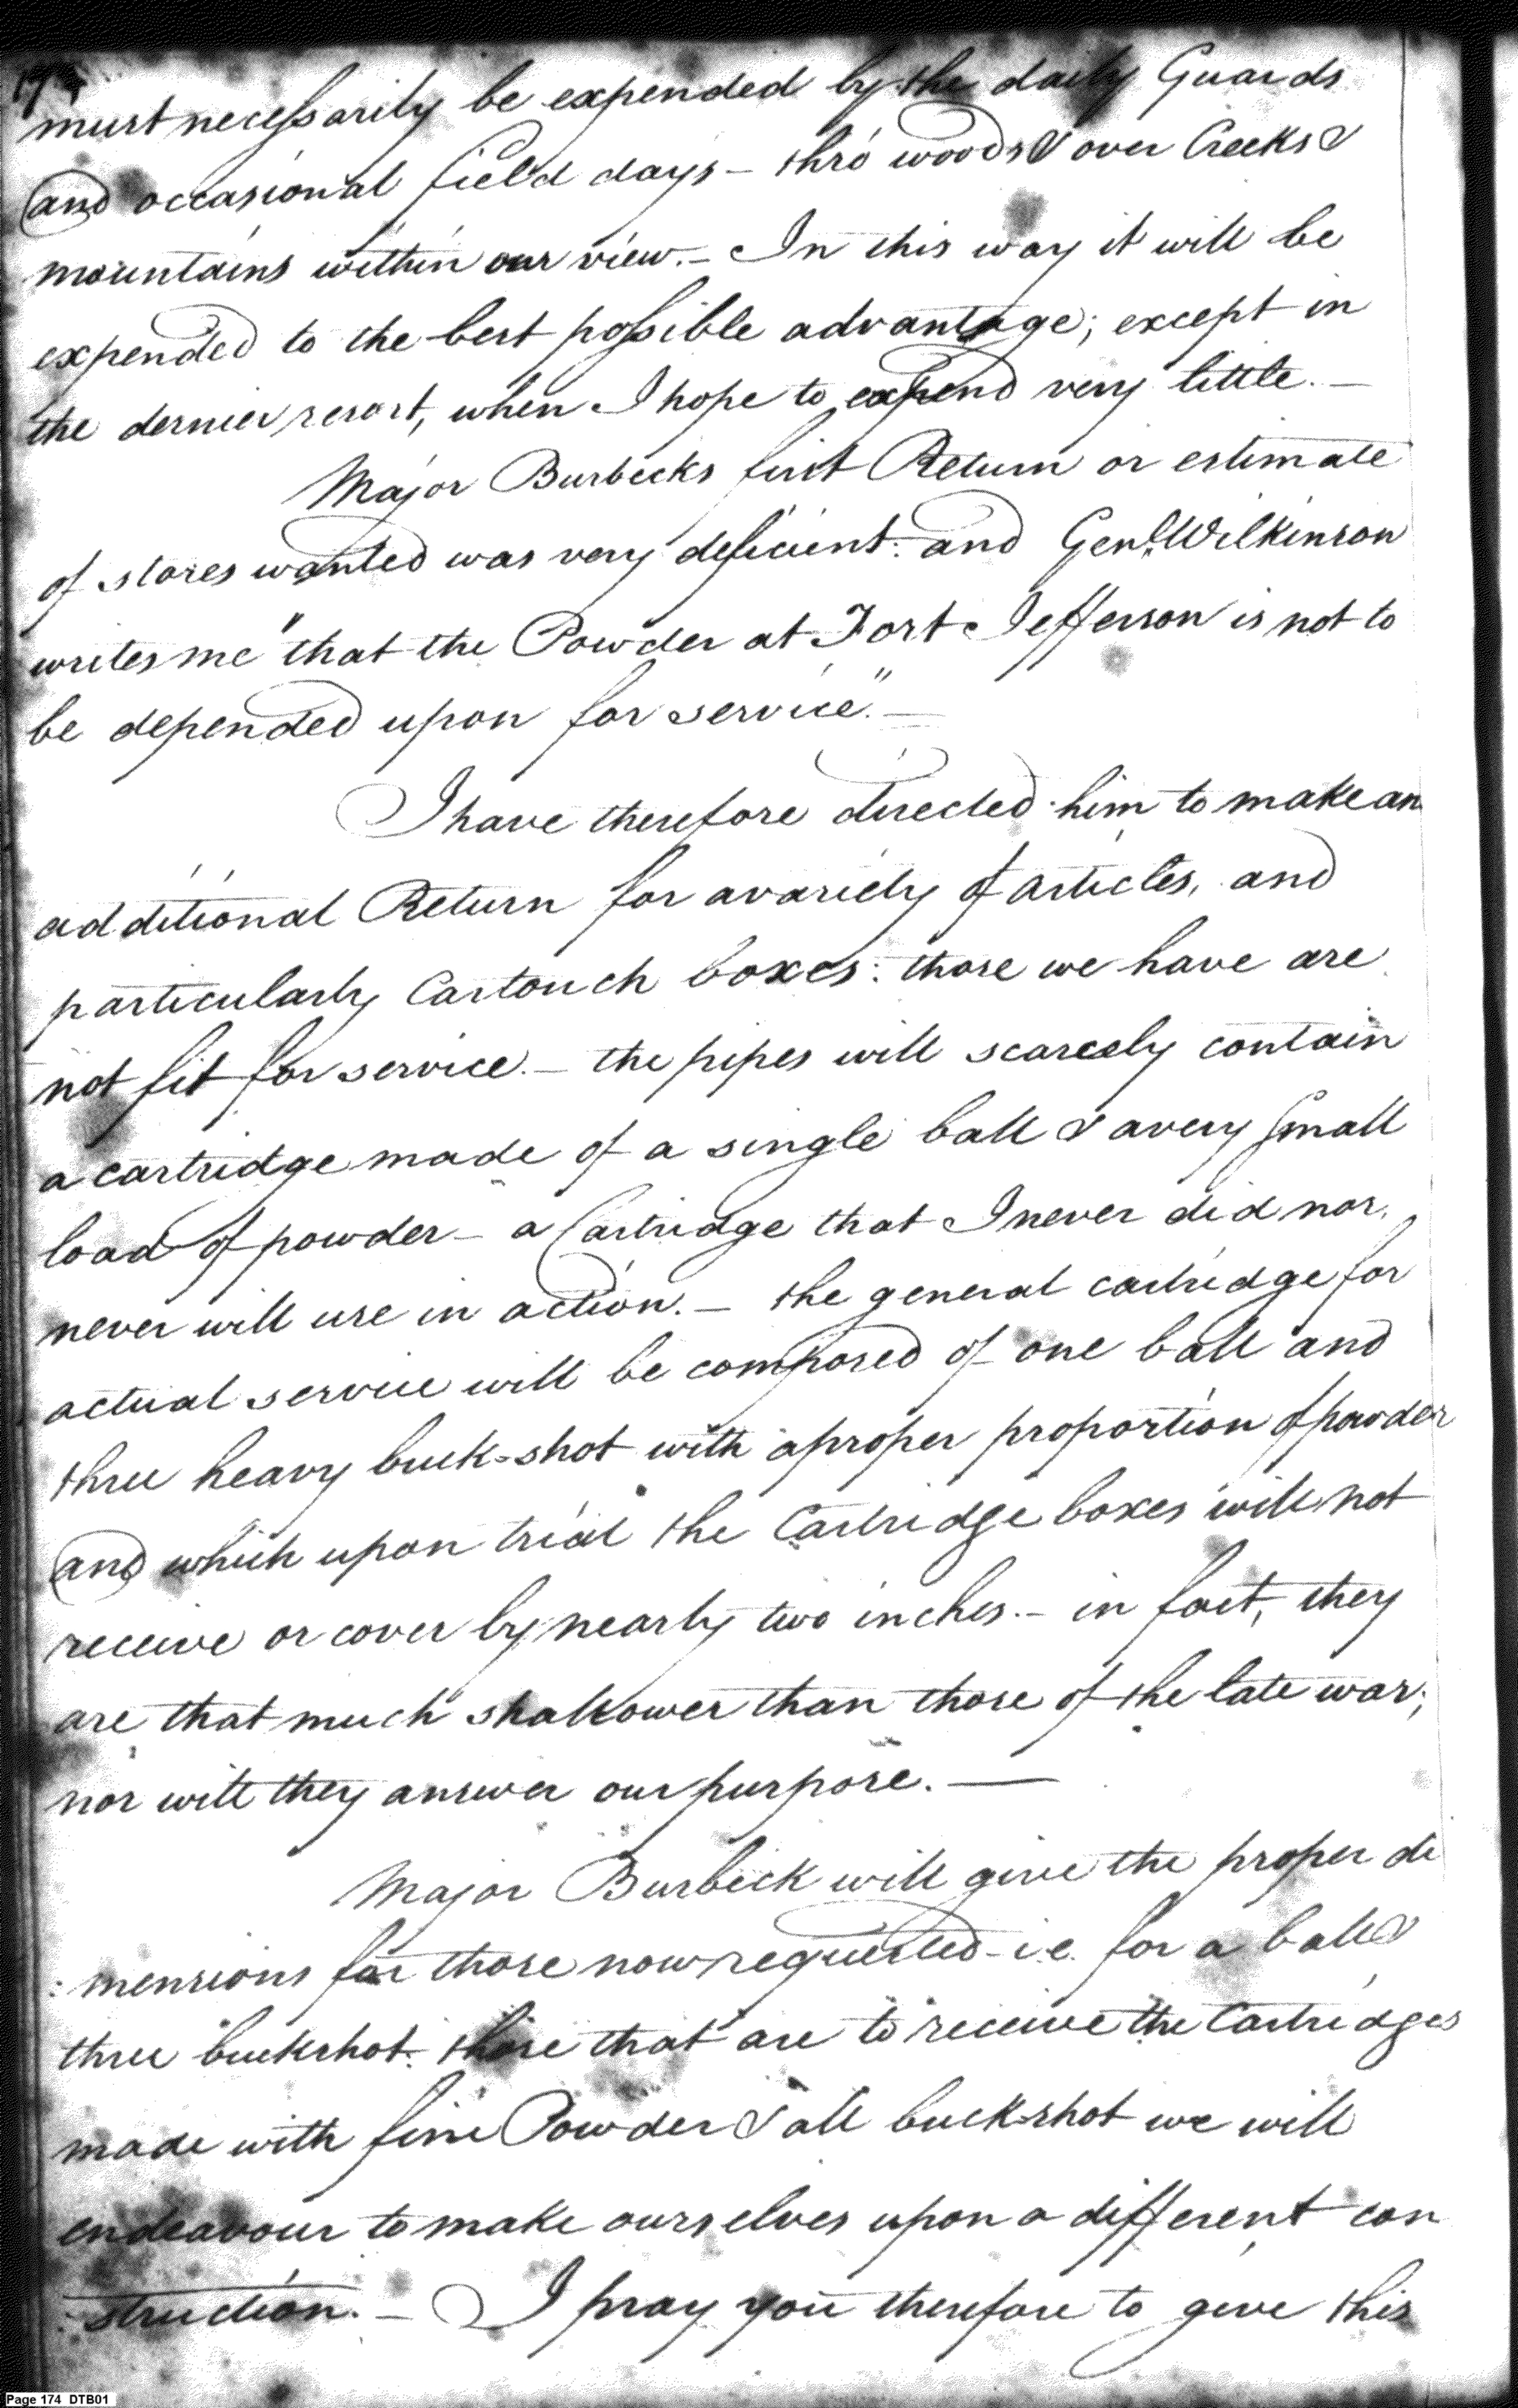 174
must necessarily be expended by the daily Guards
and occasional field days – thro' woods & over Creeks &
mountains within our view. – In this way it will be
expended to the best possible advantage; except in
the dernier resort, when I hope to expend very little. –
Major Burbecks first Return or estimate
of stores wanted was very deficient: and Genl. Wilkinson
writes me "that the Powder at Fort Jefferson is not to
be depended upon for service." –
I have therefore directed him to make an
additional Return for a variety of articles, and
particularly Cartouch boxes: those we have are
not fit for service. – the pipes will scarcely contain
a cartridge made of a single ball & a very small
load of powder – a Cartridge that I never did nor,
never will use in action. – the general cartridge for
actual service will be composed of one ball and
three heavy buck-shot with a proper proportion of powder
and which upon trial the Cartridge boxes will not
receive or cover by nearly two inches. – in fact, they
are that much shallower than those of the late war;
nor will they answer our purpose. —
Major Burbeck will give the proper di
: mensions for those now requested – i.e. for a ball &
three buckshot. those that are to receive the Cartridges
made with fine Powder & all buck-shot we will
endeavour to make ourselves upon a different con
: struction. – I pray you therefore to give this
Page 174 DTB01